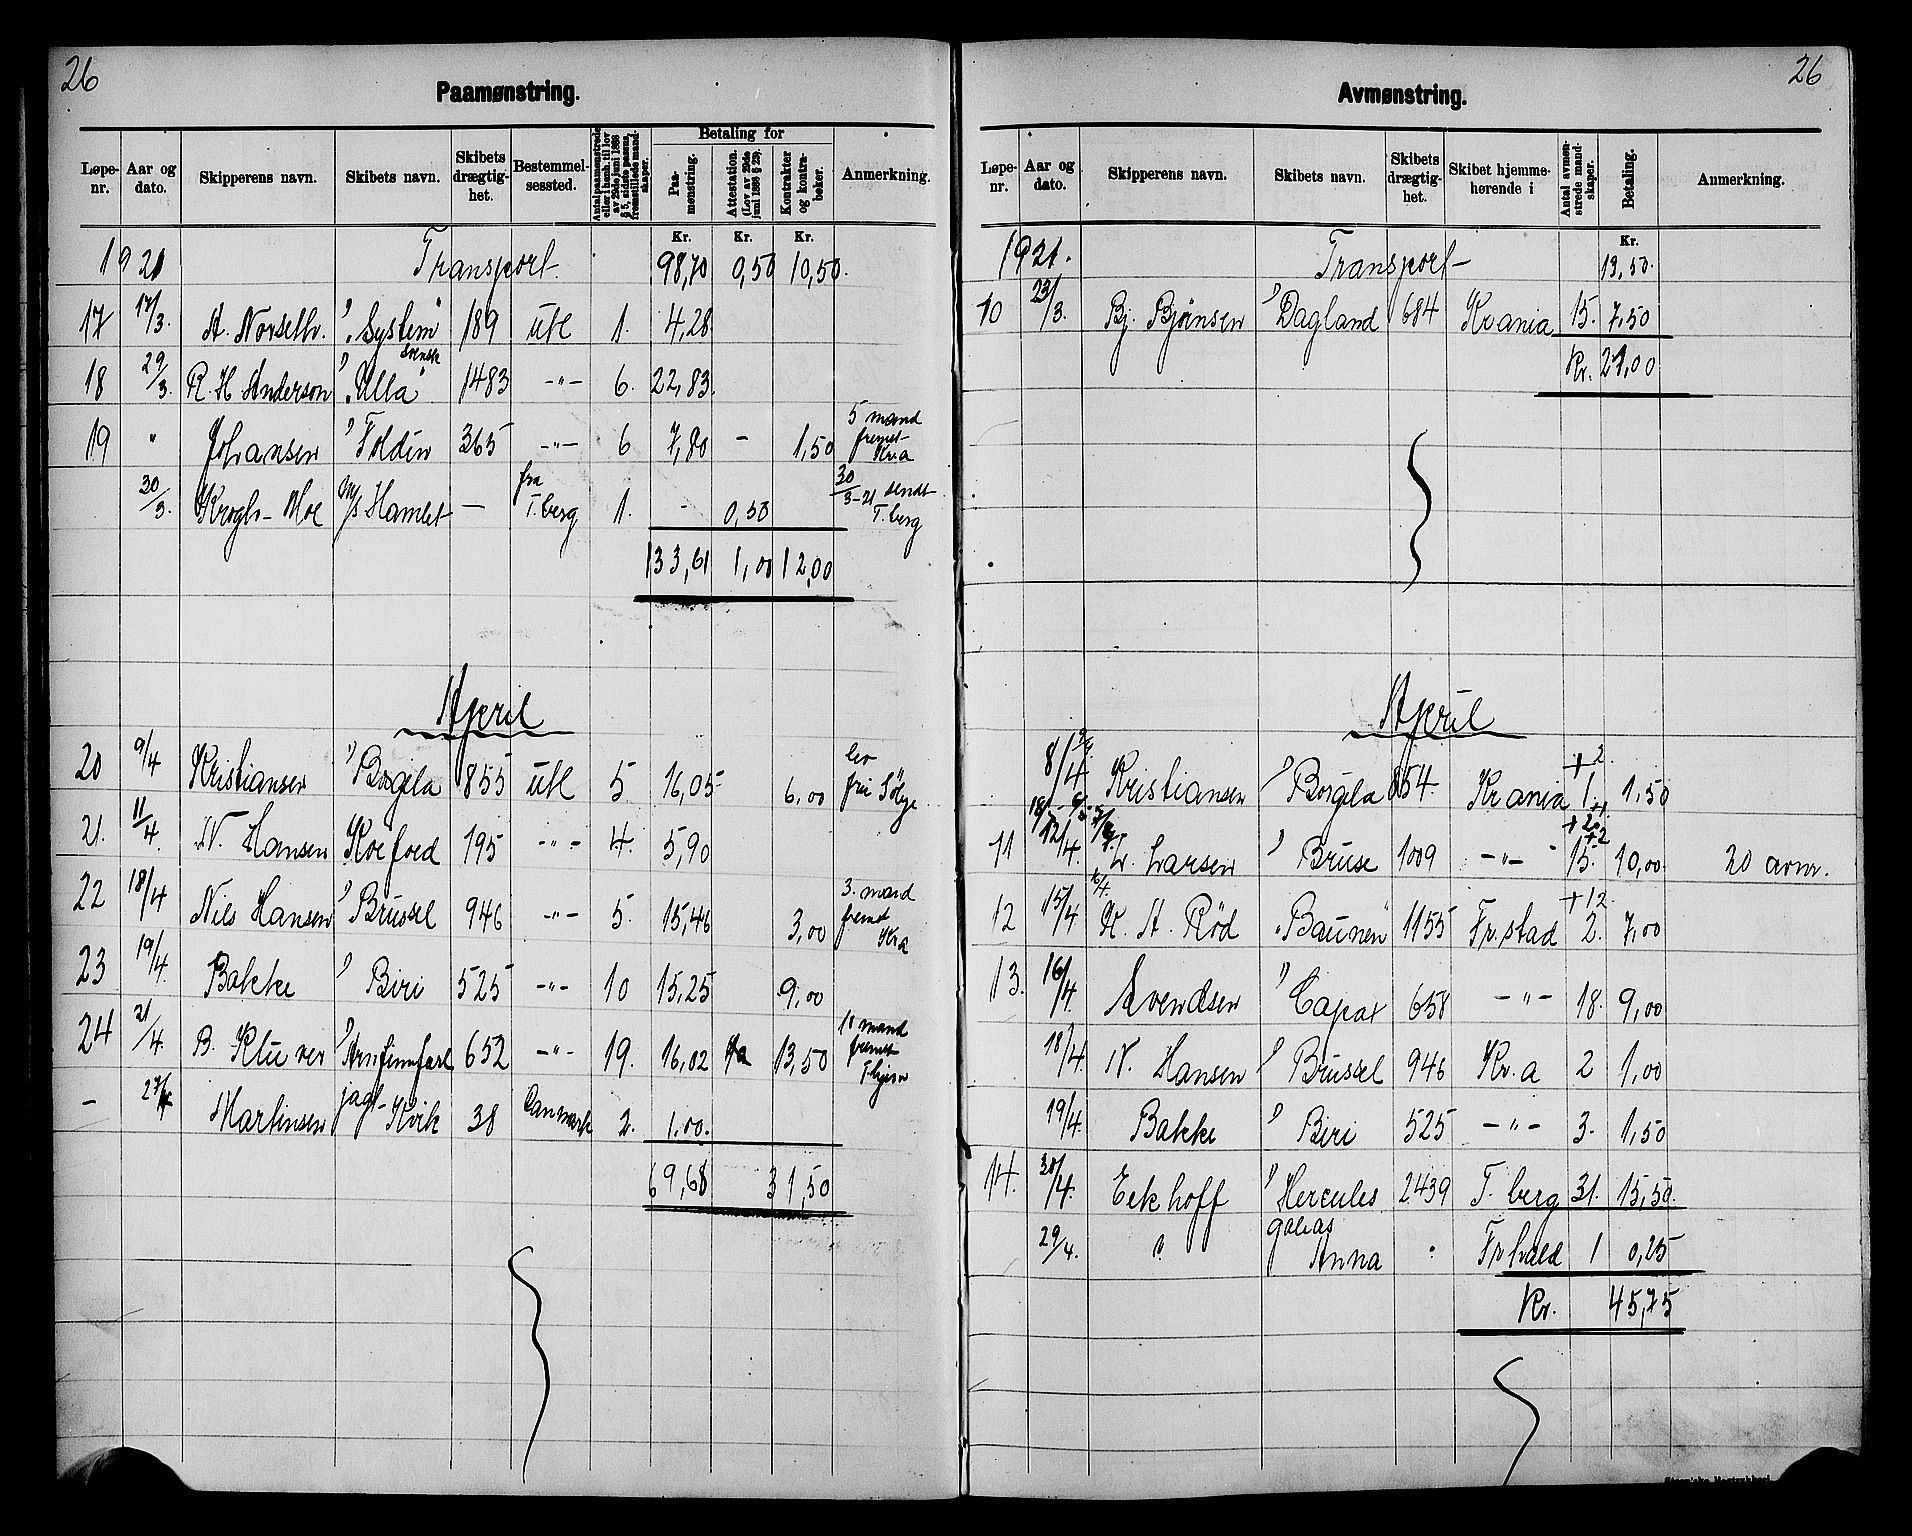 26
Paamønstring.
Løpe-nr. Aar og dato. Skipperens navn. Skibets navn. Skibets drægtig-het. Bestemmel-sessted. Antal paamønstrede eller i henh. til lov av 29de juni 1888 § 5, sidste passus, fremstillede mand-skaper. Betaling for Paa-mønstring. Attestation. (Lov av 29de juni 1888 § 29). Kontrakter og kontra-bøker. Anmerkning.
Kr. Kr. Kr.
1921 Transport 98,70 0,50 10,50.
17 17/3. A. Norseth. "System" 189 utl 1. 4,28
18 29/3. R. H Anderson "Ulla" svensk 1483 -"- 6. 22,83
19 " Johansen " Foldin 365 -"- 6 7,80 - 1,50 5 mand fremst Kra
30/3. Krogh-Moe M/S Hamlet - fra T.berg 1. - 0,50 30/3-21 sendt T.berg
133,61 1,00 12,00
April
20 9/4 Kristiansen "Borgila 855 utl 5 16,05 6,00 lev fru Sølye
21. 11/4. N. Hansen Koefoed 195 -"- 4. 5,90
22 18/4 Nils Hansen "Brüssel 946 -"- 5. 15,46 3,00 3. mand fremst Kra
23 19/4 Bakke " Biri 525 -"- 10 15,25 9,00
24 21/4. B. Kluver "Arnfinnjarl 652 -"- 19. 16,02 13,50 10 mand fremst Thjem
- 27/4 Martinsen jagt Kvik 38 Danmark 2. 1.00.
69,68 31,50
26
Avmønstring.
Løpe-nr. Aar og dato. Skipperens navn. Skibets navn. Skibets drægtig-het. Skibet hjemme-hørende i Antal avmøn-strede mand-skaper. Betaling. Anmerkning.
Kr.
1921. Transport 13,50.
10 23/3. Bj. Bjørnsen "Dagland 684 Krania 15. 7,50
Kr. 21,00
April
8/4 9/4 Kristiansen " Borgila 854. Krania +2. 1. 1,50
11 12/4. L. Larsen " Bruse 1009 -"- +2 +2 15. 10,00 20 avm.
12 15/4 16/4. K. A. Rød "Baunen" 1155 Fr.stad +12 2. 7,00
13. 16/4 Svendsen "Capax 658 -"- 18. 9,00
18/4 N. Hansen " Brüssel 946 Kr.a 2 1,00
19/4. Bakke " Biri 525 -"- 3. 1,50
14. 30/4. Eekhoff "Hercules 2439 T. berg 31. 15,50.
29/4. " galeas Anna Frhald 1 0,25
Kr. 45,75